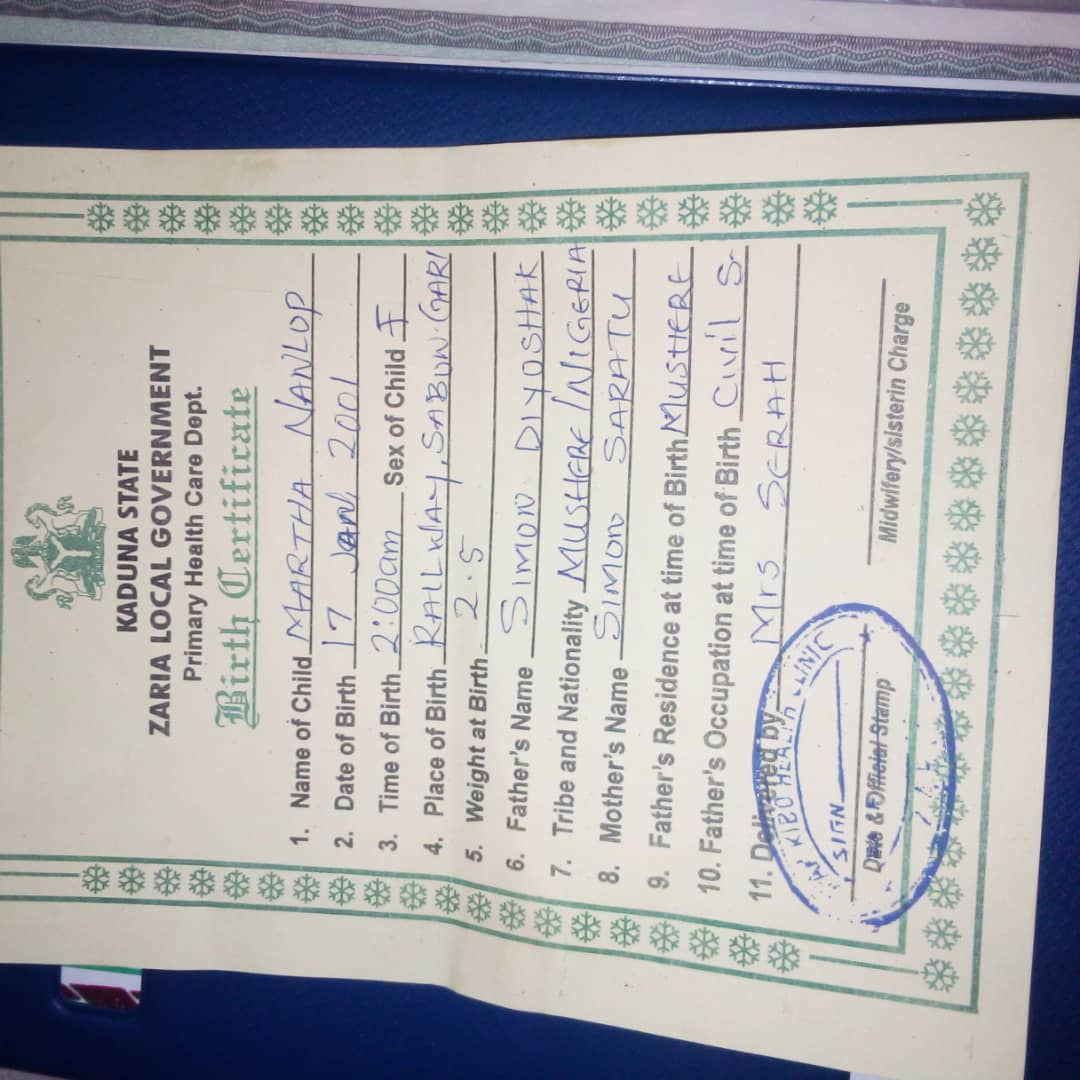 KADUNA STATE
ZARIA LOCAL GOVERNMENT
Primary Health Care Dept.
Birth Certificate
1. Name of Child MARTHA NANLOP
2. Date of Birth 17 JAN, 2001
3. Time of Birth 2:00am Sex of Child F
4. Place of Birth RAILWAY, SABON-GARI
5. Weight at Birth 2.5
6. Father's Name SIMON DIYOSHAK
7. Tribe and Nationality MUSHERE/NIGERIA
8. Mother's Name SIMON SARATU
9. Father's Residence at time of Birth MUSHERE
10. Father's Occupation at time of Birth Civil S
11. Delivered by Mrs SERAH
KIBO HEALTH CLINIC
SIGN
Date & Official Stamp
Midwifery/sisterin Charge